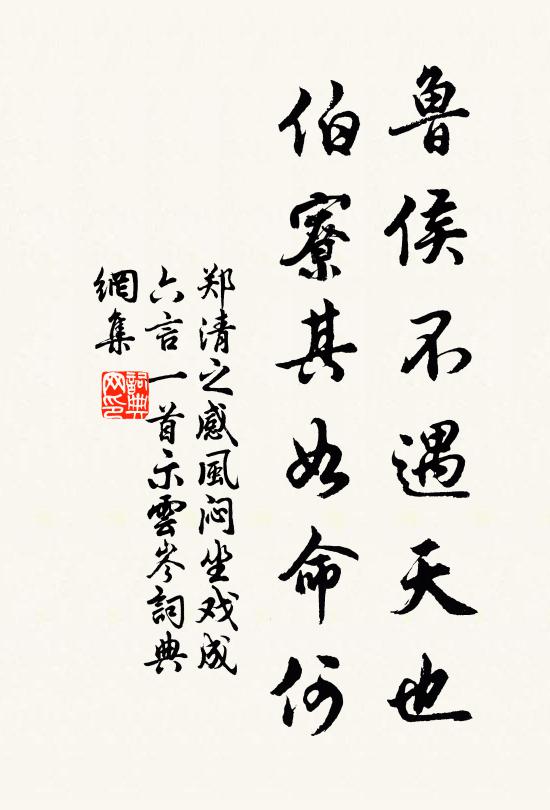 鲁侯不遇天也
伯寮其如命何
郑清之感风闷坐戏成
六言一首示雲岑詞典
網集
詞典
网印